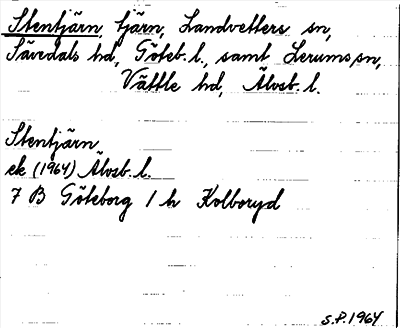 Stentjärn, tjärn, Landvetters sn,
Sävedals hd, Göteb. l., samt Lerums sn,
Vättle hd, Älvsb. l.
Stentjärn
ek (1964) Älvsb. l.
7 B Göteborg 1 h Kolboryd
S.P. 1964